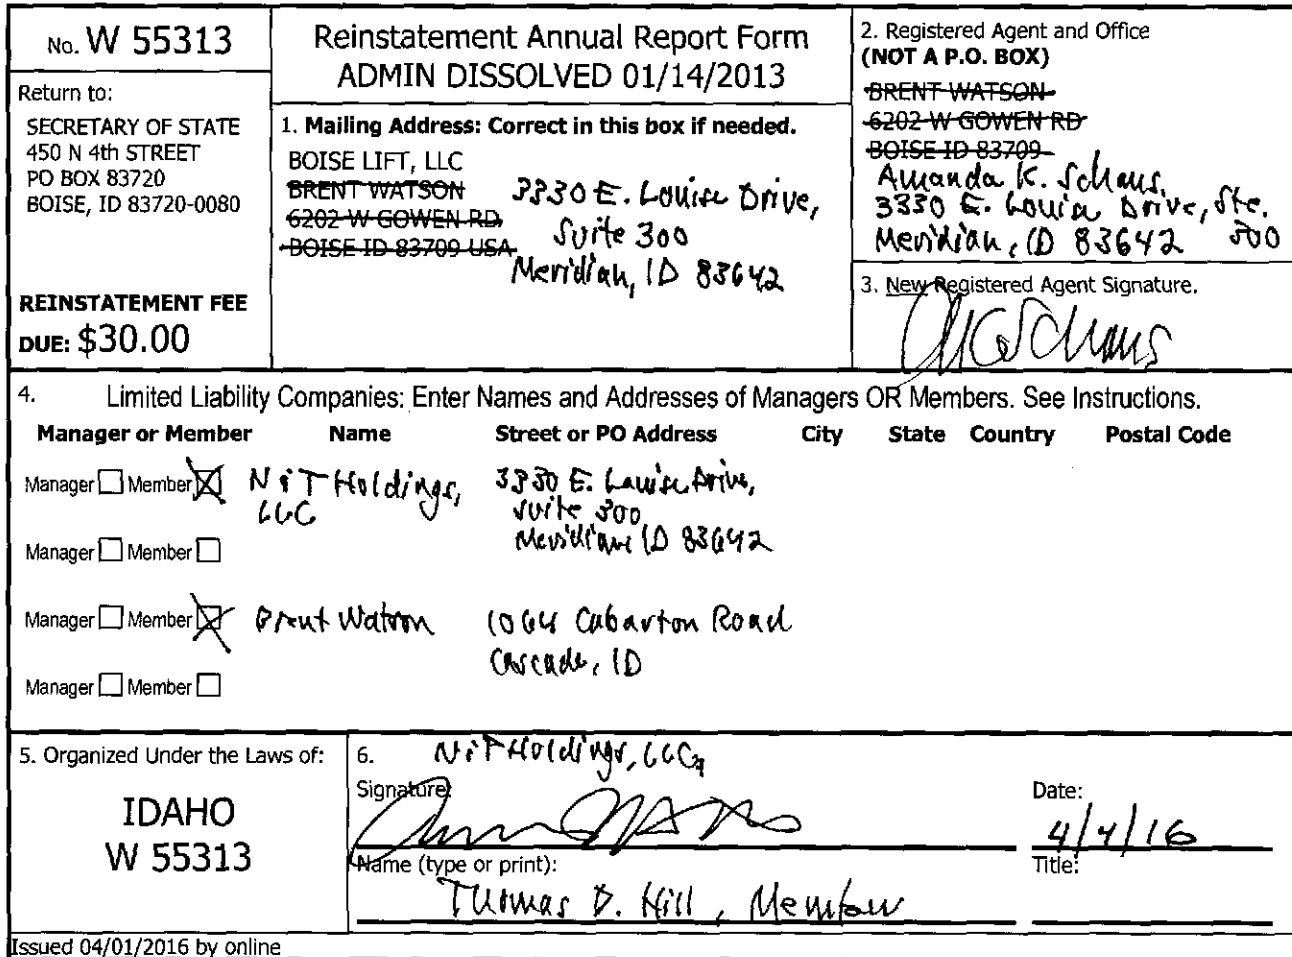 No. W 55313
Return to:
SECRETARY OF STATE
450 N 4th STREET
PO BOX 83720
BOISE, ID 83720-0080
REINSTATEMENT FEE
DUE: $30.00
Reinstatement Annual Report Form
ADMIN DISSOLVED 01/14/2013
1. Mailing Address: Correct in this box if needed.
BOISE LIFT, LLC
BRENT WATSON
6202 W GOWEN RD
BOISE ID 83709 USA
3330 E. Louise Drive,
Suite 300
Meridian, ID 83642
2. Registered Agent and Office
(NOT A P.O. BOX)
BRENT WATSON
6202 W GOWEN RD
BOISE ID 83709
Amanda K. Schaus,
3330 E. Louise Drive, Ste.
300
Meridian, ID 83642
3. New Registered Agent Signature.
AKSchaus
4. Limited Liability Companies: Enter Names and Addresses of Managers OR Members. See Instructions.
Manager or Member Name Street or PO Address City State Country Postal Code
Manager Member NiT Holdings, 3330 E. Louise Drive,
LLC Suite 300
Meridian ID 83642
Manager Member
Manager Member Brent Watson 1064 Cabarton Road
Cascade, ID
Manager Member
5. Organized Under the Laws of:
IDAHO
W 55313
6. NiT Holdings, LLC
Signature:
Date:
4/4/16
Name (type or print):
Title:
Thomas D. Hill, Member
Issued 04/01/2016 by online